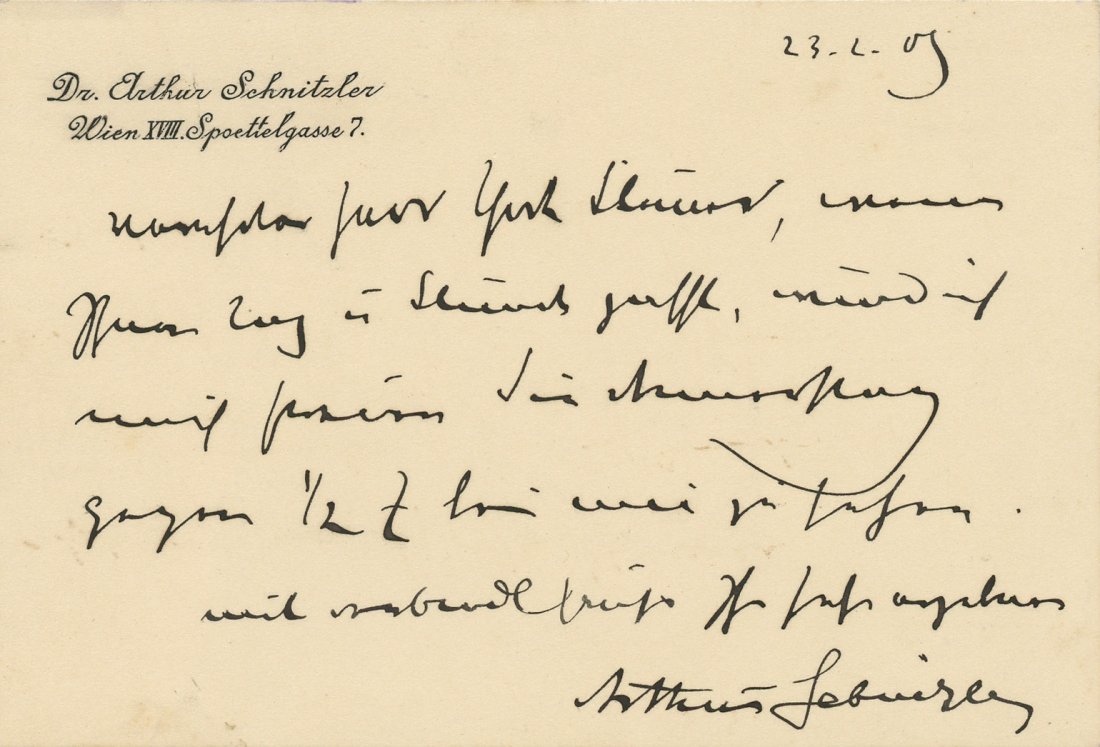 23. 2. 09
Dr. Arthur Schnitzler
Wien XVIII. Spoettelgasse 7.
verehrter Herr York Steiner, wenn
Ihnen Tag u Stunde passt, würd ich
mich freuen Sie Donnerstag
gegen 1/2 7 bei mir zu sehen.
mit verbindl Ihr sehr ergebner
Arthur Schnitzler